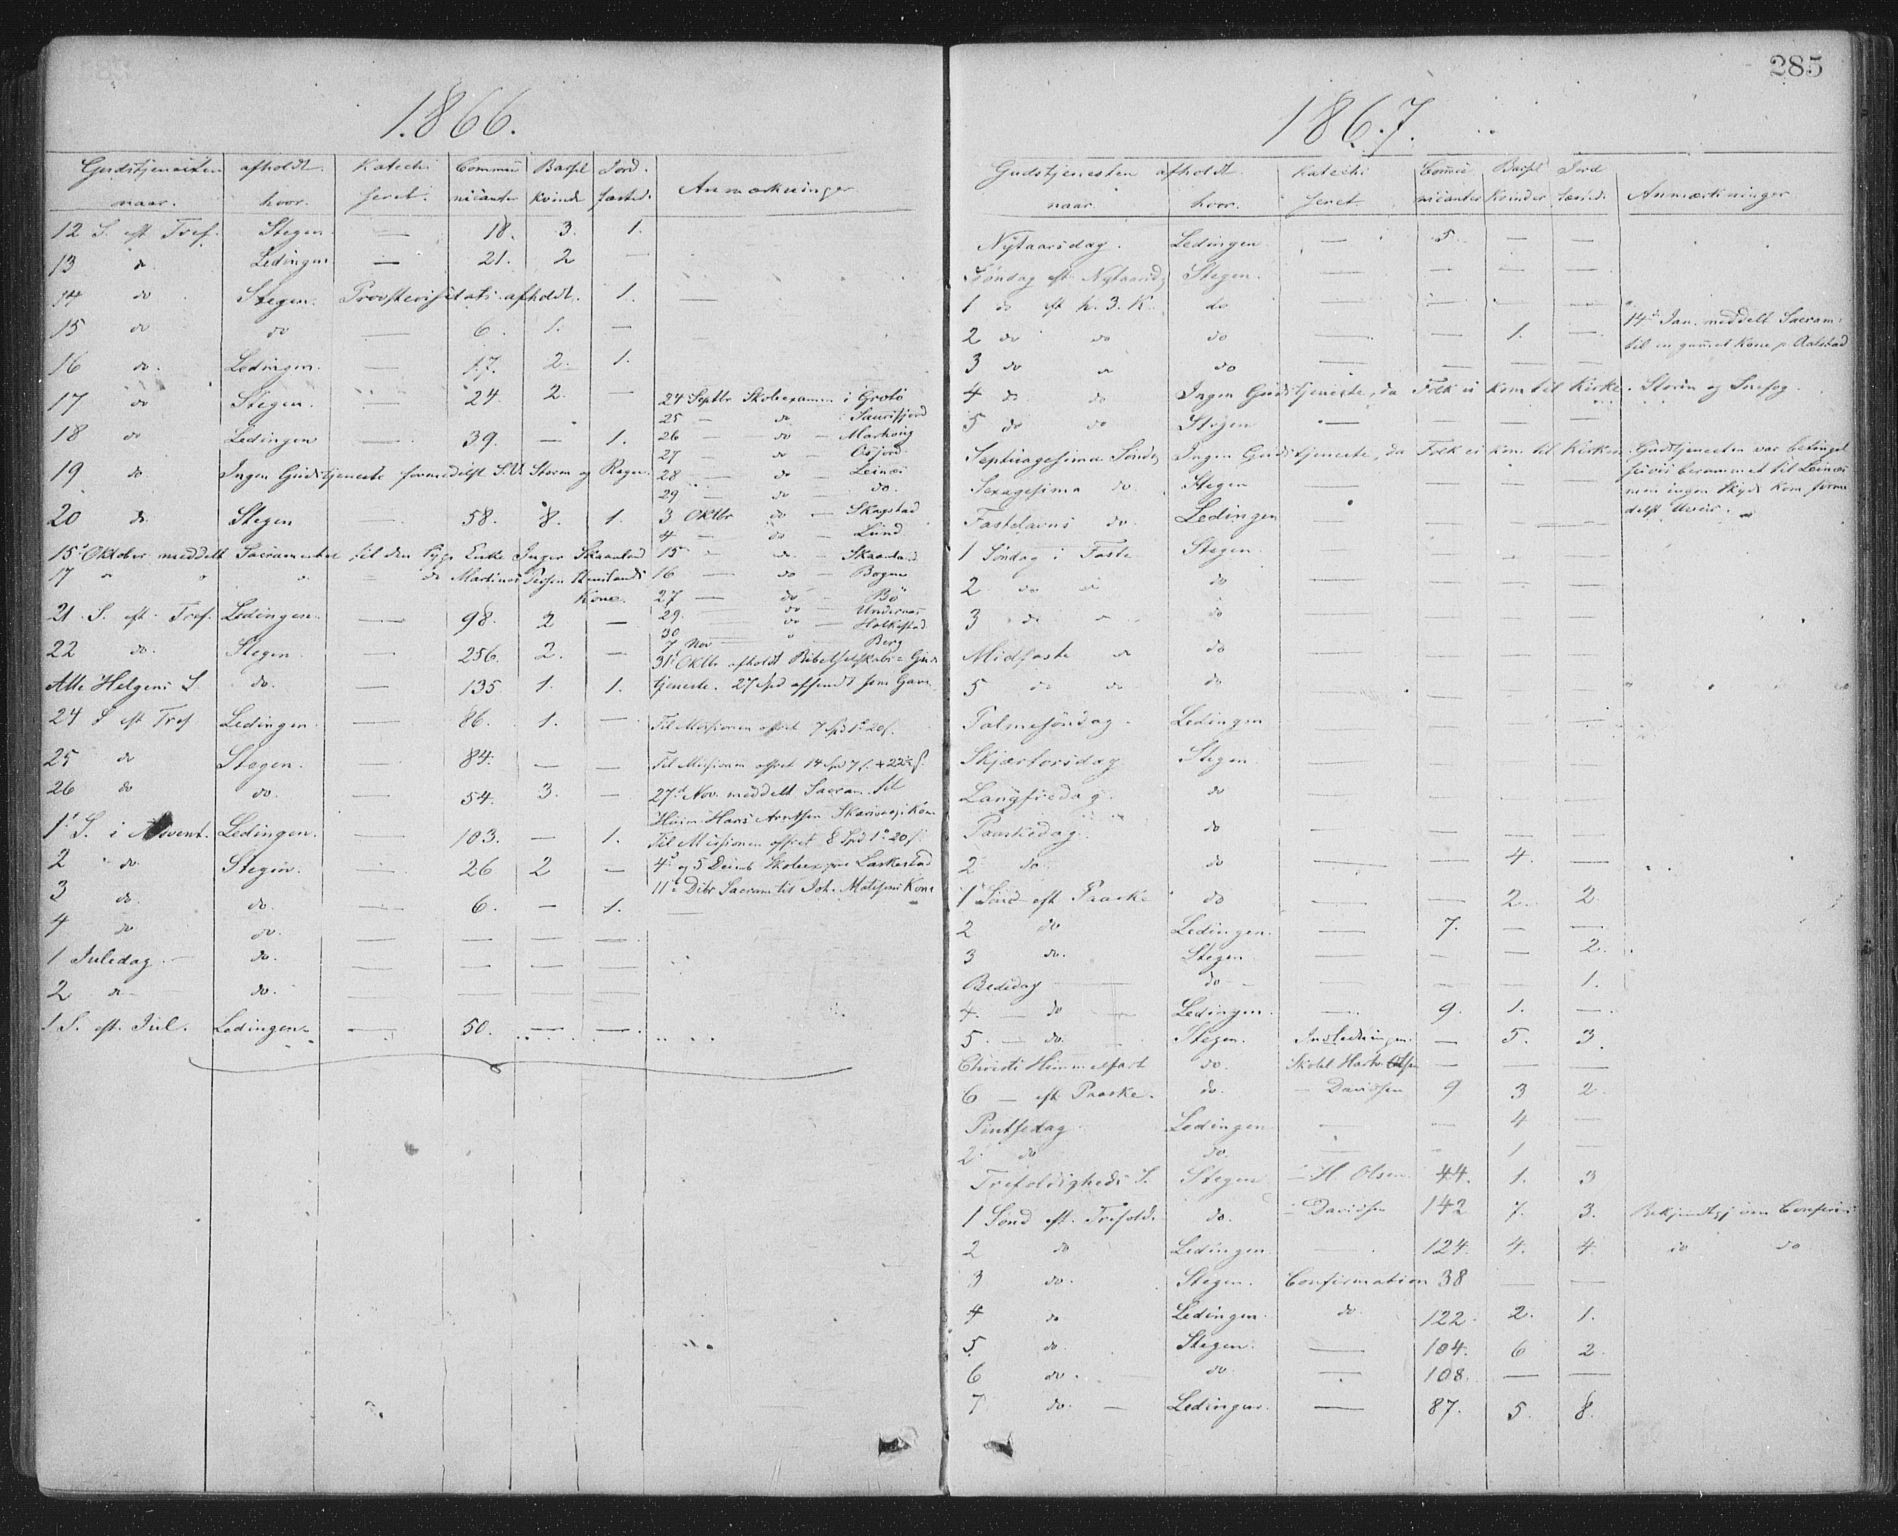 1866.
Gudstjenesten afholdt Katechi Commu Barsel Jord- Anmærkninger
naar. hvor. seret. nicanter kvinder fæstede
12 S. eft Tref. Stegen — 18. 3. 1.
13 do Ledingen — 21. 2 —
14 do Stegen. Provstevisitats afholdt. 1.
15 do do — 6. 1. —
16 do. Ledingen. — 17. 2. 1.
17 do Stegen. — 24 2. — 24 Septbr Skoleexamen i Grotö
25 — do
18 do Ledingen — 39. — 1. 26 — do —
27 — do —
19 do Ingen Gudstjeneste formedelst S.V. Storm og Regn. 28 — do — Leines
29 — do — do.
20 do Stegen — 58. 8. 1. 3 Oktbr do — Skagstad
4 — do — Lund
15de Oktober meddelt Sacramentet til den syge Enke Inger Skaanland 15 — do — Skaanland
17 " " " do Martinus Kone. 16 — do — Bogen
27 — do — Bö
21. S. eft. Tref. Ledingen. — 98. 2 — 29. do —
30 do —
22 do. Stegen. — 256. 2. — 7 Nov Berg
31 Oktbr afholdt Bibelselskabs Guds
Alle Helgens S. do. — 135 1. 1. tjeneste. 27 Spd
24 S eft Tref Ledingen. — 86. 1. — Til Missionen offret 7 Spd
25 do Stegen. — 84. — — Til Missionen offret 14 Spd
26 do do. — 54. 3. — 27de Nov. meddelt Sacram. til
Hans Arntsen Kone
1ste S. i Advent. Ledingen. — 103. — 1. Til Missionen offret 8 Spd
2 do. Stegen. — 26 2 — 4de og 5 Laskestad
3 do. do. — 6. — 1. 11te Dcbr Sacram til Joh. Kone
4 do do. — — — —
1 Juledag. do. — — — —
2 do do. — — — —
1 S. eft. Jul. Ledingen. — 50. — —
285
1867.
Gudstjenesten afholdt Katechi Commu Barsel Jord Anmærkninger
naar. hvor. seret. nicanter kvinder fæstede.
Nytaarsdag. Ledingen — 5. — —
Söndag eft Nytaarsd. Stegen. — — — —
1 do eft h. 3. K. do — — — —
2 do do do — — 1. — 14de Jan. meddelt Sacram:
til en gammel Kone p
3 do do — — — —
4 do do Ingen Gudstjeneste, da Folk ei kom til Kirke. Storm og Snefog.
5 do do Stegen — — — —
Septuagesima Söndag Ingen Gudstjeneste, da Folk ei kom til Kirken. Gudstjenesten var
berammet til Leines
Sexagesima do. Stegen — — — — men ingen Skyds kom forme
Fastelavns do. Ledingen — — — — delst Uveir.
1 Söndag i Faste Stegen — — — —
2 do do do — — — —
3 do do — — — —
Midfaste do — — — —
5 do do do — — — —
Palmesöndag. Ledingen — — — —
Skjærtorsdag Stegen — — — —
Langfredag. do — — — —
Paaskedag. do — — — —
2 do. do — — 4. —
1 Sönd eft Paaske do — — 2. 2
2 do Ledingen. — 7. — —
3 do. Stegen — — — 2.
Bededag do — 1.
4. — do Ledingen. — 9. 1. —
5. — do. Stegen. — 5. 3.
Christi Himmelfart do. — — —
6 — eft Paaske. do. — Davidsen 9 3 2
Pintsedag Ledingen — — 4 —
2. do do. — — 1 —
Trefoldigheds S. Stegen — H. Olsen 44. 1. 3
1 Sönd eft. Trefold. do. — Davidsen 142 7. 3.
2 do Ledingen — 124. 4. 4. do do
3 do. Stegen. Confirmation 38 — —
4 do Ledingen. do 122. 2. 1.
5. do. Stegen. — 104. 6 2
6 do. do — 108. — —
7 do. — Ledingen. — 87. 5. 8.